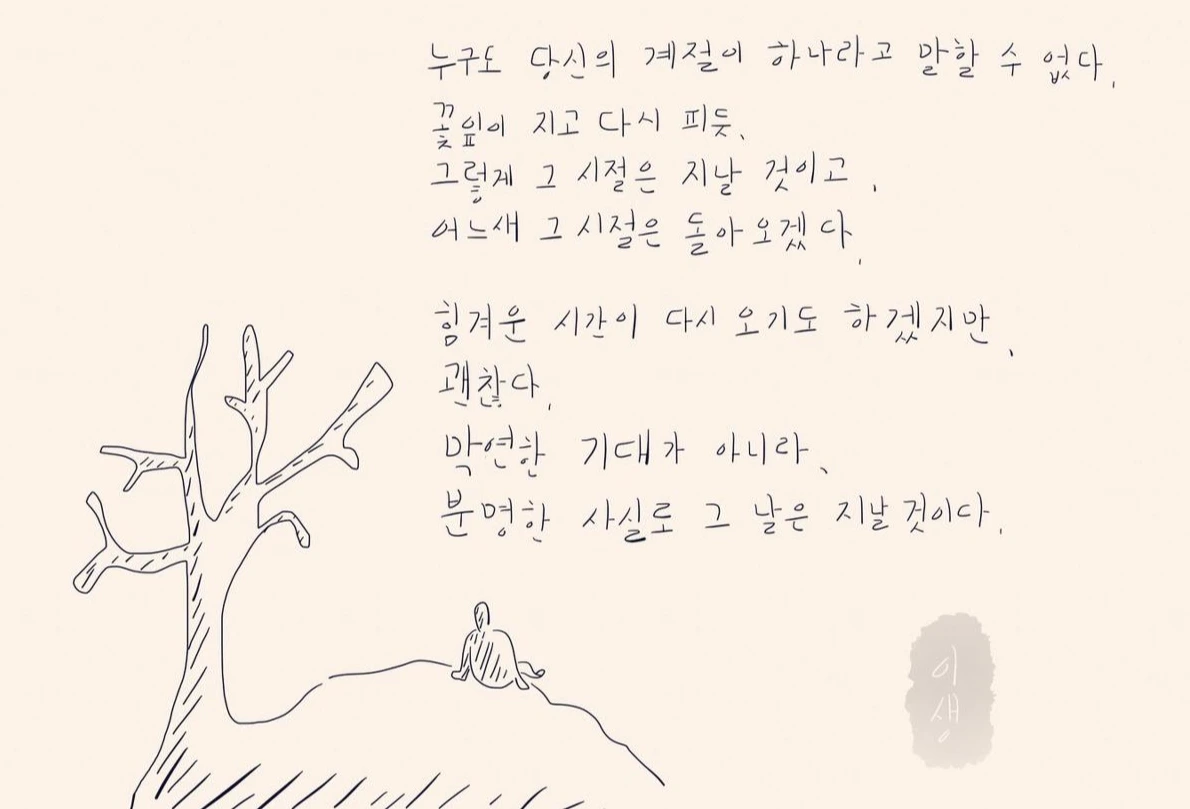 누구도 당신의 계절이 하나라고 말할 수 없다.
꽃잎이 지고 다시 피듯,
그렇게 그 시절은 지날 것이고,
어느새 그 시절은 돌아오겠다.
힘겨운 시간이 다시 오기도 하겠지만,
괜찮다.
막연한 기대가 아니라,
분명한 사실로 그 날은 지날 것이다.
이
생